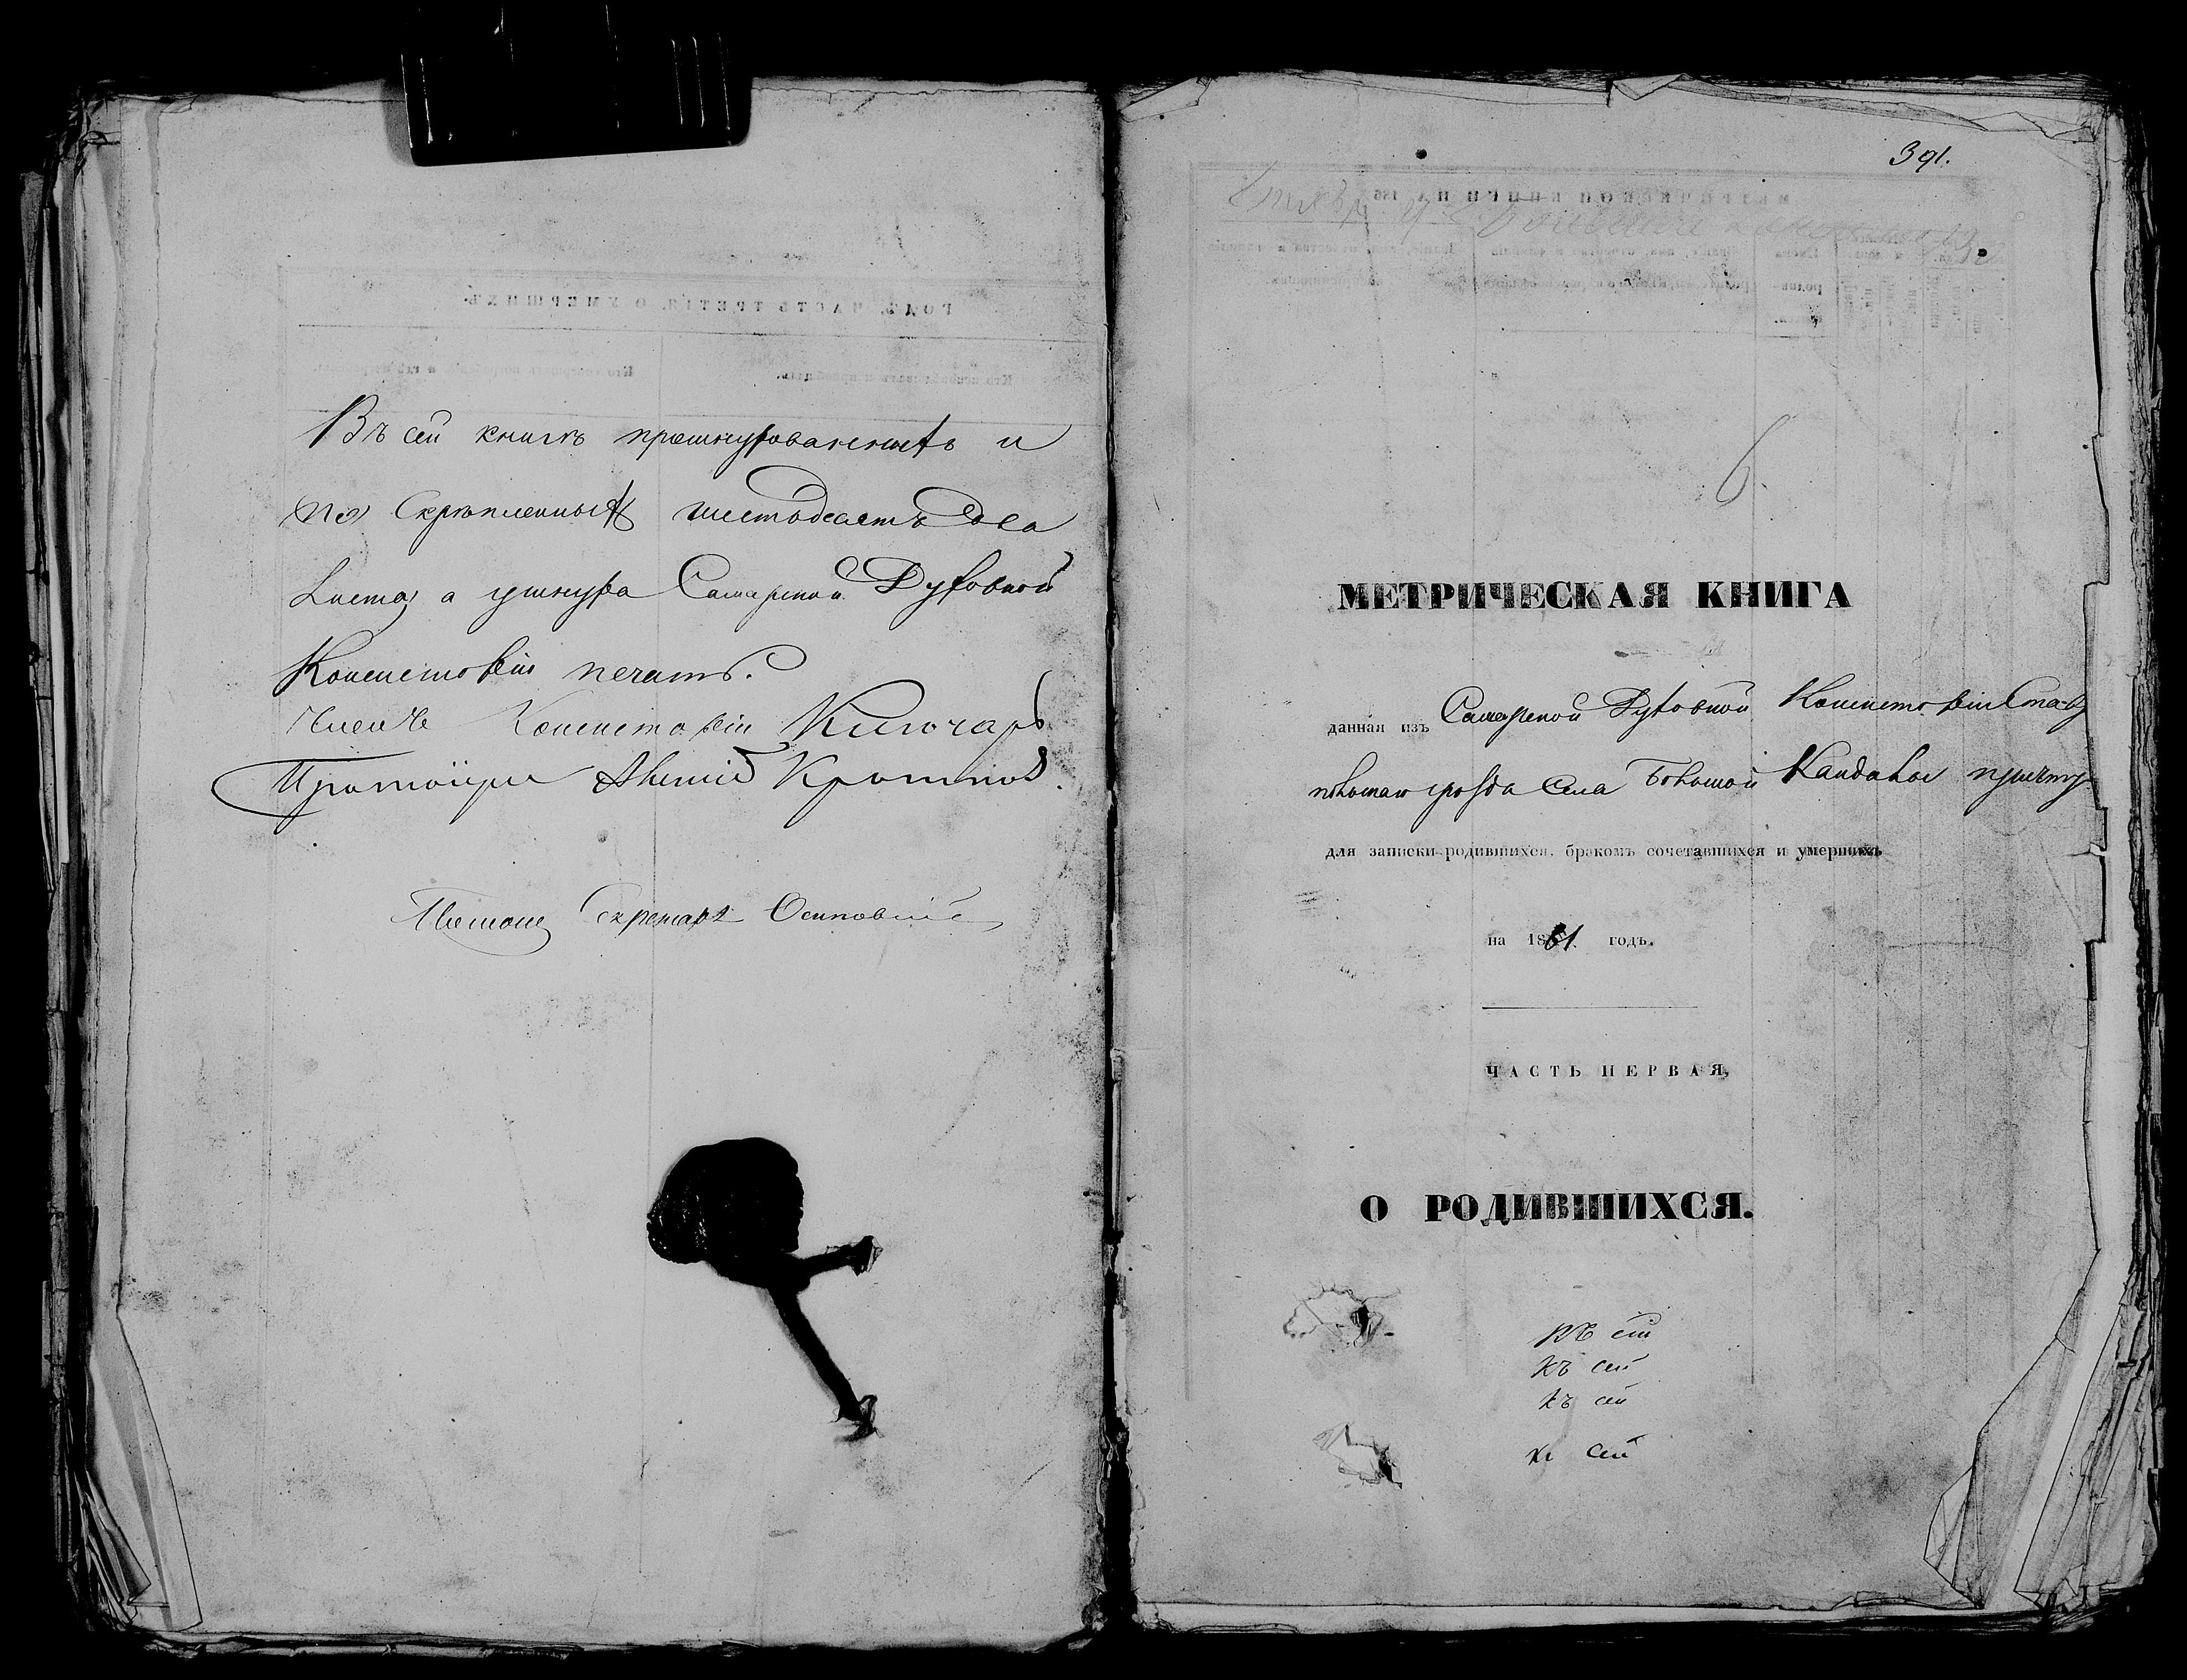 Въ сей книгѣ прошнурованныхъ и
по Скрѣпленныхъ шестьдесятъ два
Листа, а у шнура Самарской Духовной
Консисторіи печать.
Членъ Консисторіи Ключарь
Протоіерей Кротковъ.
Секретарь Осиповскій
391.
6.
МЕТРИЧЕСКАЯ КНИГА
данная изъ Самарской Духовной Консисторіи Став
польскаго уѣзда Села Большой Кандалы причту
для записки родившихся, бракомъ сочетавшихся и умершихъ
на 1861 годъ.
ЧАСТЬ ПЕРВАЯ,
О РОДИВШИХСЯ.
къ сей
къ сей
къ сей
къ сей